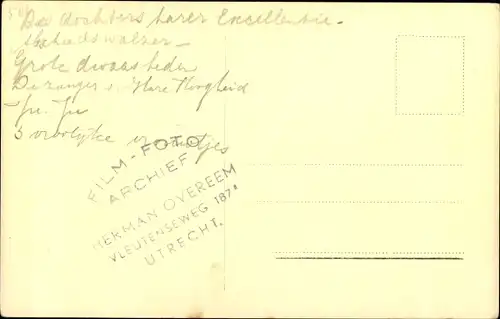 De dochters harer Excellentie -
Afscheidswalzer -
Grote dwaasheden
De zanger v. Hare Hoogheid
- fu - fu
3 vroolijke vrouwtjes
FILM - FOTO
ARCHIEF
HERMAN OVEREEM
VLEUTENSEWEG 187A
UTRECHT.